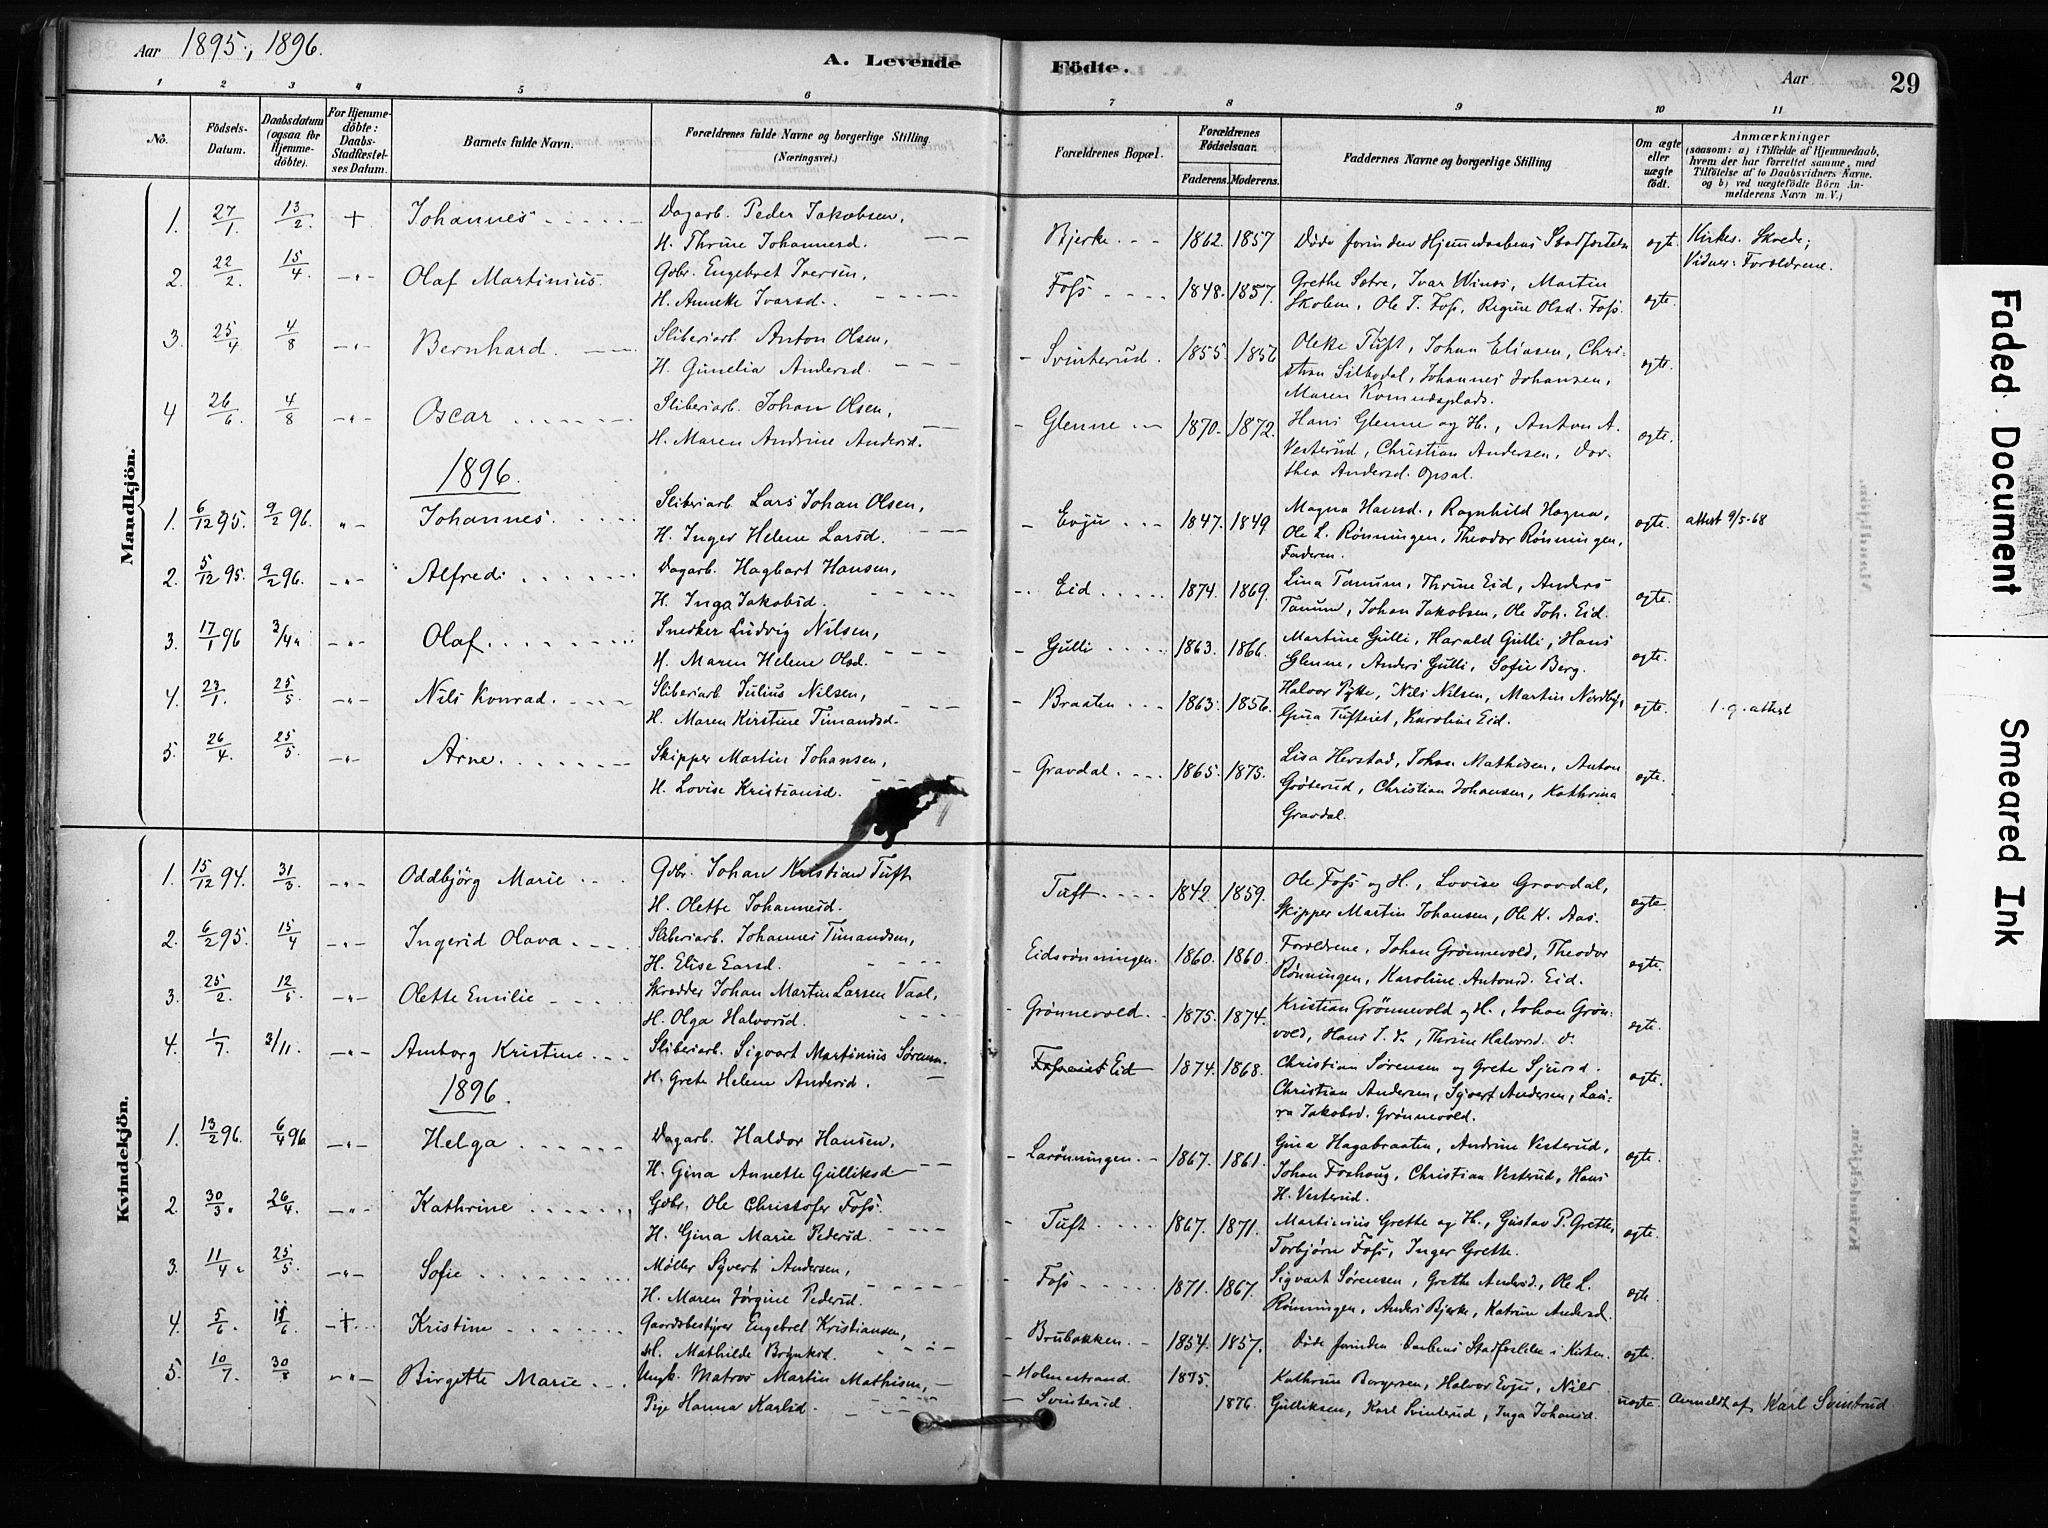 Aar 1895, 1896.
A. Levende Födte.
Aar
29
1 2 3 4 5 6 7 8 9 10 11
No.
Födsels-Datum.
Daabsdatum (ogsaa for Hjemmedöbte).
For Hjemmedöbte: Daabs-Stadfæstelses Datum.
Barnets fulde Navn.
Forældrenes fulde Navne og borgerlige Stilling (Næringsvei.)
Forældrenes Bopæl.
Forældrenes Födselsaar.
Faderens. Moderens.
Faddernes Navne og borgerlige Stilling
Om ægte eller uægte födt.
Anmærkninger
(saasom: a) i Tilfælde af Hjemmedaab, hvem der har forrettet samme, med Tilföielse af to Daabsvidners Navne. og b) ved uægtefödte Börn Anmelderens Navn m. V.)
Mandkjön.
1. 27/1 13/2 + Johannes Dagarb. Peder Jakobsen,
H. Thrine Johannesd. Bjerke 1862. 1857 Döde forinden Hjemmedaabens Stadfæstelse ægte. Kirkes. Skrede; Vidner: Forældrene.
2. 22/2 15/4 -"- Olaf Martinius. Gdbr. Engebret Iversen,
H. Annette Ivarsd. Foss 1848. 1857. Grethe Sætre, Ivar Winæs, Martin
Skolem, Ole T. Foss, Regine Olsd. Foss. ægte.
3. 25/4 4/8 -"- Bernhard. Sliberiarb. Anton Olsen,
H. Gunelia Andersd. Svinterud. 1855. 1856 Olette Tuft, Johan Eliasen, Chri-
stian Silbodal, Johannes Johansen,
Maren Komnæsplads. ægte.
4 26/6 4/8 -"- Oscar Sliberiarb. Johan Olsen,
H. Maren Andrine Andersd. Glenne 1870. 1872. Hans Glenne og H., Anton A.
Vesterud, Christian Andersen, Dor-
thea Andersd. Opsal. ægte.
1896.
1. 6/12 95. 9/2 96. "- Johannes. Sliberiarb. Lars Johan Olsen,
H. Inger Helene Larsd. Evju 1847. 1849 Magna Hansd., Ragnhild Hagna,
Ole L. Rønningen, Theodor Rønningen,
Faderen. ægte. attest 9/5-68
2. 5/12 95. 9/2 96. -"- Alfred Dagarb. Hagbart Hansen,
H. Inga Jakobsd. Eid 1874. 1869. Lina Tanum, Thrine Eid, Anders
Tanum, Johan Jakobsen, Ole Joh. Eid. ægte.
3. 17/1 96 3/4 " -"- Olaf. Snedker Ludvig Nilsen,
H. Maren Helene Olsd. Gulli 1863. 1866. Martine Gulli, Harald Gulli, Hans
Glenne, Anders Gulli, Sofie Berg. ægte.
4. 23/1 25/5 -"- Nils Konrad. Sliberiarb Julius Nilsen,
H. Maren Kirstine Timandsd. Braaten 1863. 1856. Halvor Pytte, Nils Nilsen, Martin Nordby,
Gina Tufteiet, Karoline Eid. ægte. 1. g. attest
5. 26/4 25/5 -"- Arne. Skipper Martin Johansen,
H. Lovise Kristiansd. Gravdal. 1865. 1875. Lisa Herstad, Johan Mathisen, Anton
Grøterud, Christian Johansen, Kathrina
Gravdal. ægte.
Kvindekjön.
1. 15/12 94. 31/3 -"- Oddbjörg Marie Gdbr. Johan Kristian Tuft
H. Olette Johannesd. Tuft 1842. 1859. Ole Foss og H., Lovise Gravdal,
Skipper Martin Johansen, Ole K. Aas. ægte.
2. 6/2 95. 15/4 -"- Ingerid Olava Sliberiarb. Johannes Timandsen,
H. Elise Larsd. Eidsrønningen. 1860. 1860. Forældrene, Johan Grønnevold, Theodor
Rønningen, Karoline Antonsd. Eid. ægte.
3. 25/2 12/5 -"- Olette Emilie Skrædder Johan Martin Larsen Vaal,
H. Olga Halvorsd. Grönnevold. 1875. 1874. Kristian Grönnevold og H., Johan Grön-
vold, Hans J. do, Thrine Halvorsd. do. ægte.
4. 1/7. 3/11. -"- Amborg Kristine Sliberiarb. Sigvart Martinius Sørensen.
H. Grete Helene Andersd. Fosseiet Eid 1874. 1868. Christian Sørensen og Grete Sjursd.
Christian Andersen, Syvert Andersen, Lau-
ra Jakobsd. Grönnevold. ægte.
1896.
1. 13/2 96. 6/4 96 -"- Helga Dagarb. Haldor Hansen,
H. Gina Annette Gulliksd Larönningen. 1867. 1861. Gina Hagabraaten, Andrine Vesterud,
Johan Foshaug, Christian Vesterud, Hans
H. Vesterud. ægte.
2. 30/3 " 26/4. -"- Kathrine Gdbr. Ole Christofer Foss.
H. Gina Marie Pedersd. Tuft 1867. 1871. Martinius Grette og H., Gustav P. Grette,
Torbjørn Foss, Inger Grette. ægte.
3. 11/4 " 25/5 -"- Sofie Møller Syvert Andersen,
H. Maren Jørgine Pedersd. Foss 1871. 1867. Sigvart Sørensen, Grethe Andersd., Ole L.
Rønningen, Anders Bjerke, Katrine Andersd. ægte.
4. 5/6. 18/6 -+- Kristine Gaardsbestyrer Engebret Kristiansen,
H. Mathilde Brynksd. Brubakken 1854. 1857. Döde forinden Daabens Stadfæstelse i Kirken. ægte.
5. 10/7 30/8 -"- Birgitte Marie Ungk. Matros Martin Mathisen, Holmestrand 1875. Kathrine Borgersen, Halvor Evju, Nils
Pige Hanna Karlsd. Svinterud. 1876. Gulliksen, Karl Svinterud, Inga Johansd. uægte. Anmeldt af Karl Svinterud
Faded Document
Smeared Ink